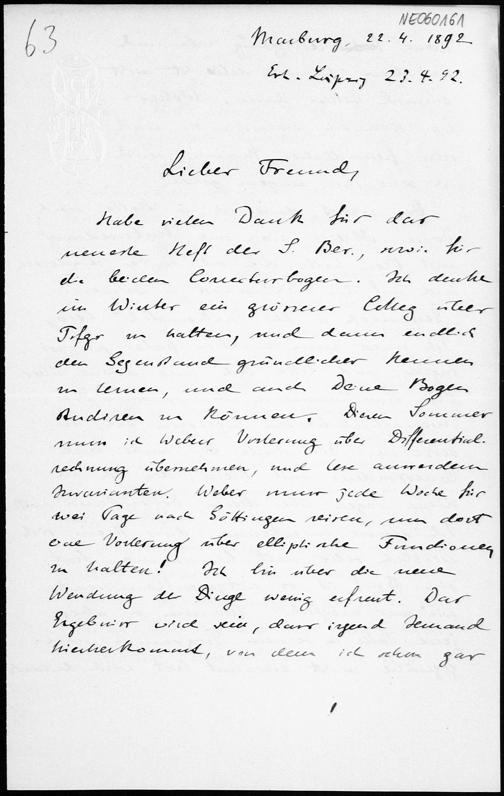 NE060161
63
Marburg. 22. 4. 1892
Erh. Leipzig 23.4.92.
Lieber Freund,
Habe vielen Dank für das
neueste Heft der S. Ber., sowie für
die beiden Correcturbogen. Ich denke
im Winter ein grösseres Colleg über
Trfgr zu halten, und dann endlich
den Gegenstand gründlicher kennen
zu lernen, und auch Deine Bogen
studiren zu können. Diesen Sommer
muss ich Webers Vorlesung über Differential-
rechnung übernehmen, und lese ausserdem
Invarianten. Weber muss jede Woche für
zwei Tage nach Göttingen reisen, um dort
eine Vorlesung über elliptische Functionen
zu halten! Ich bin über die neue
Wendung der Dinge wenig erfreut. Das
Ergebniss wird sein, dass irgend Jemand
hierherkommt, von dem ich schon gar